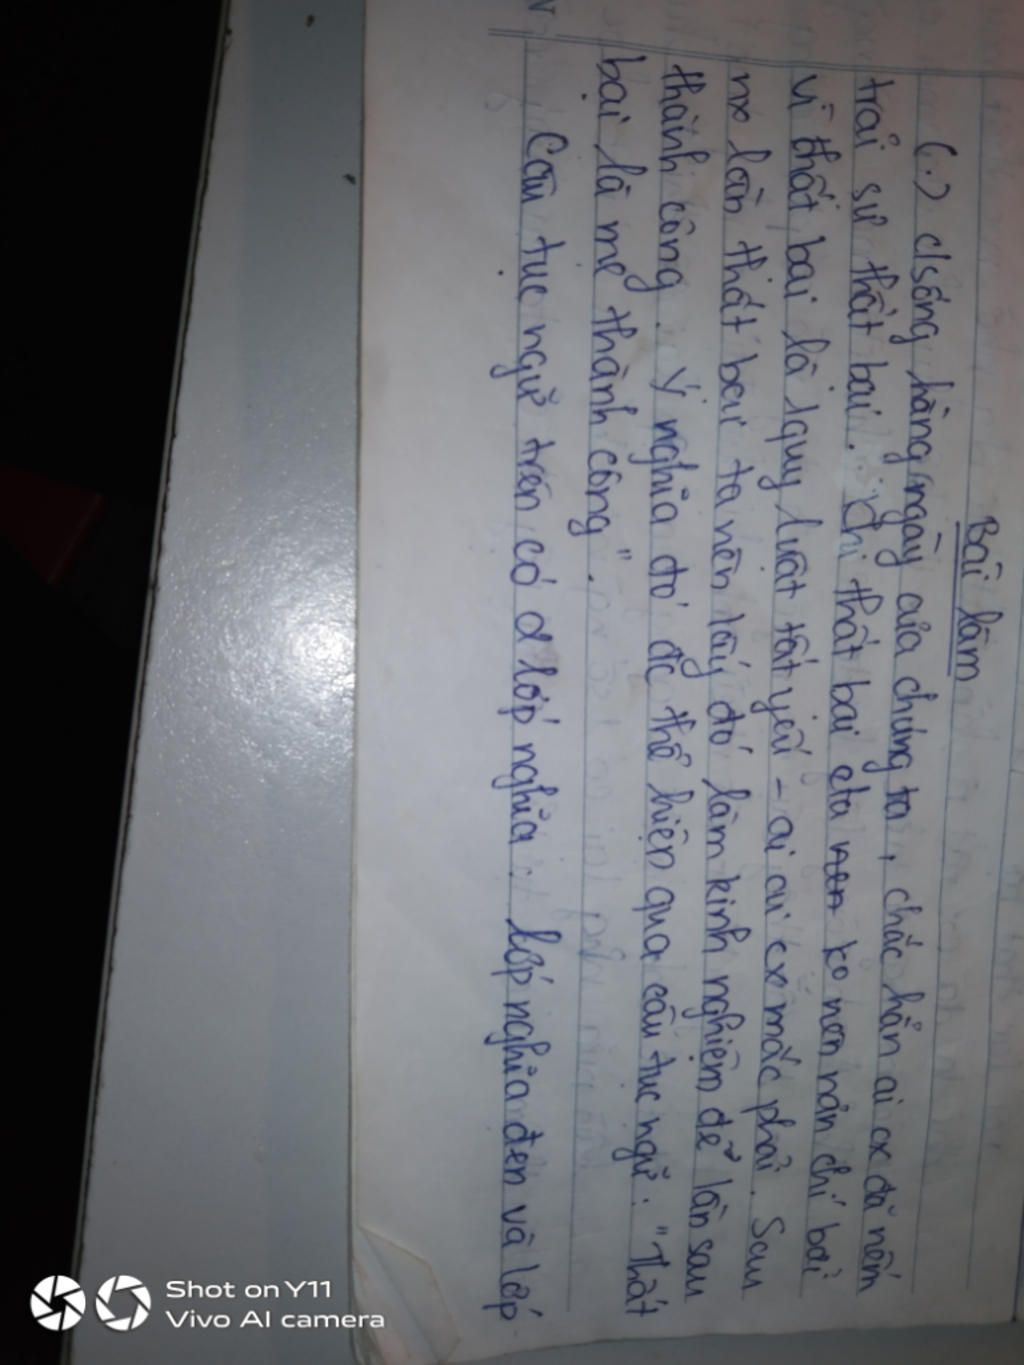 Bài làm
(.) c/sống hằng ngày của chúng ta, chắc hẳn ai cx đã nếm
trải sự thất bại. Khi thất bại cta nen ko nên nản chí bởi
vì thất bại là 1 quy luật tất yếu - ai ai cx mắc phải. Sau
mx lần thất bại ta nên lấy đó làm kinh nghiệm để lần sau
thành công. Ý nghĩa đó đc thể hiện qua câu tục ngữ: "Thất
bại là mẹ thành công".
Câu tục ngữ trên có 2 lớp nghĩa: lớp nghĩa đen và lớp
Shot on Y11
Vivo AI camera